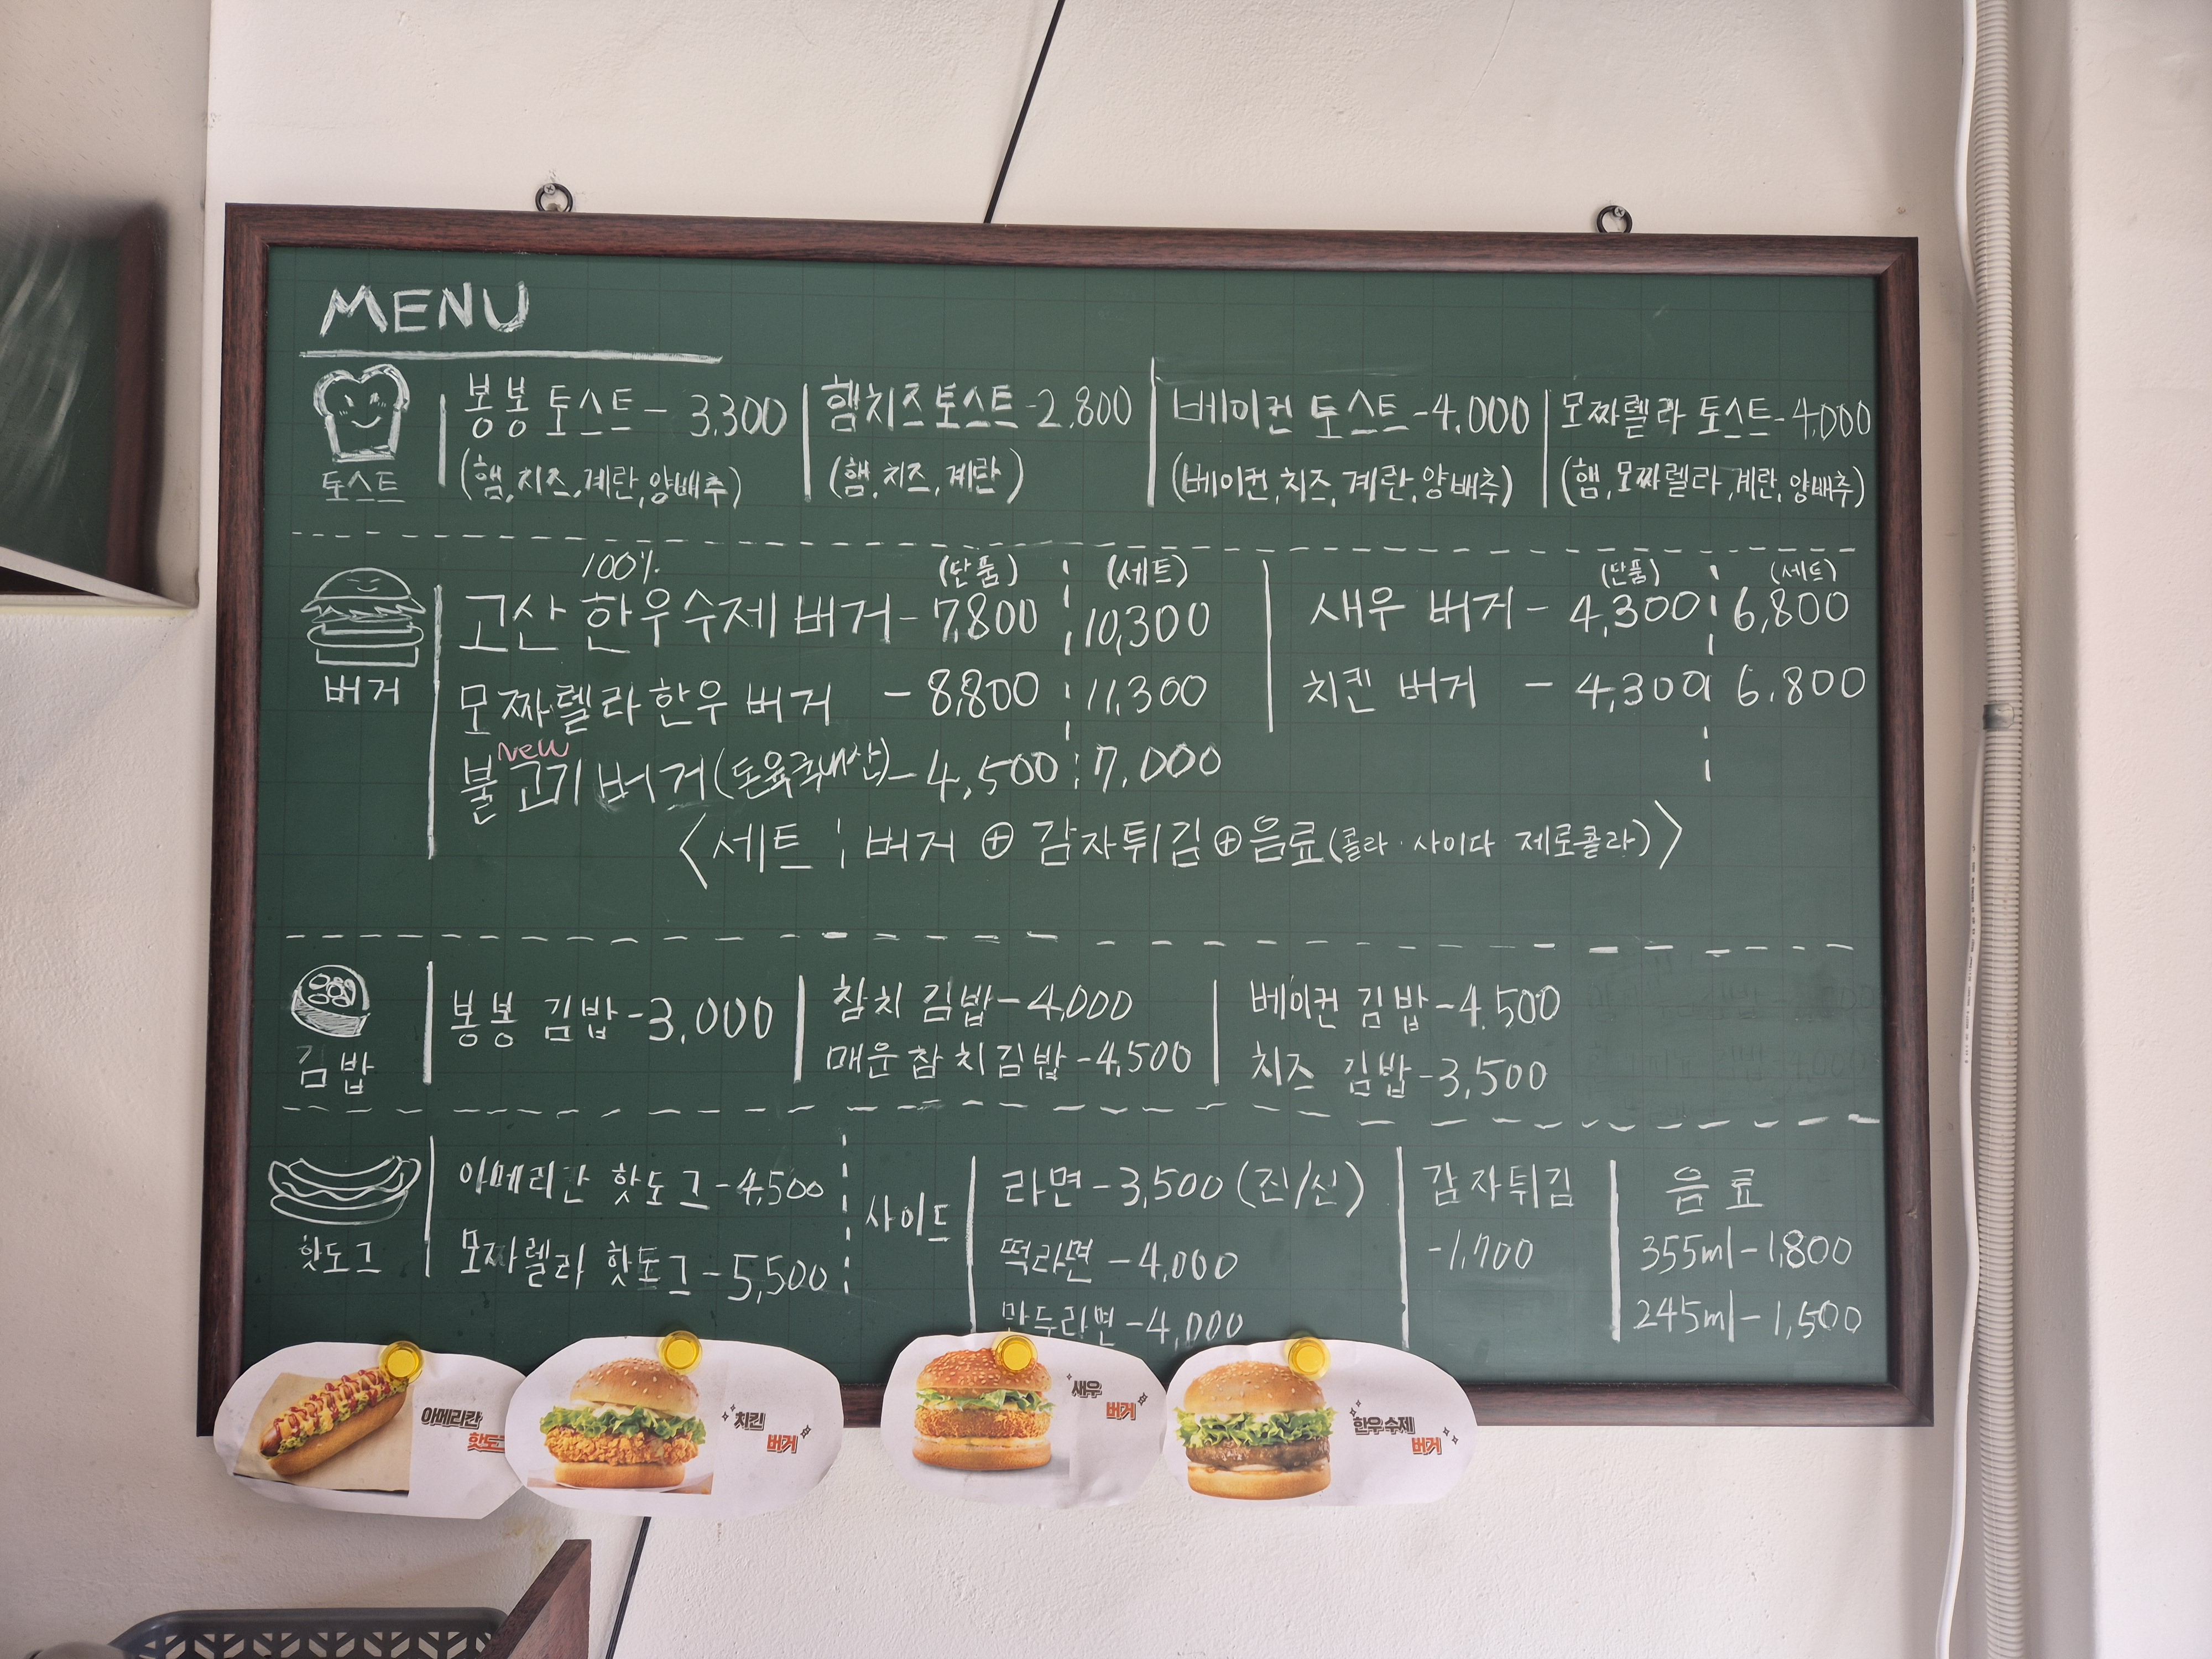 MENU
토스트
봉봉토스트- 3,300
(햄,치즈,계란,양배추)
햄치즈토스트-2,800
(햄,치즈,계란)
베이컨 토스트-4,000
(베이컨,치즈,계란,양배추)
모짜렐라 토스트-4,000
(햄,모짜렐라,계란,양배추)
버거
100% (단품) (세트)
고산 한우수제 버거-7,800 10,300
모짜렐라한우버거 -8,800 11,300
New
불고기버거(돈육국내산)-4,500 7,000
(단품) (세트)
새우 버거- 4,300 6,800
치킨 버거 - 4,300 6,800
<세트 : 버거 ⊕ 감자튀김⊕음료(콜라·사이다 제로콜라)>
김밥
봉봉 김밥-3,000
참치 김밥-4,000
매운참치김밥-4,500
베이컨 김밥-4,500
치즈 김밥-3,500
핫도그
아메리칸 핫도그-4,500
모짜렐라 핫도그-5,500
사이드
라면-3,500(진/신)
떡라면-4,000
만두라면-4,000
감자튀김
-1,700
음료
355ml-1,800
245ml-1,500
아메리칸
핫도그
치킨
버거
새우
버거
한우 수제
버거